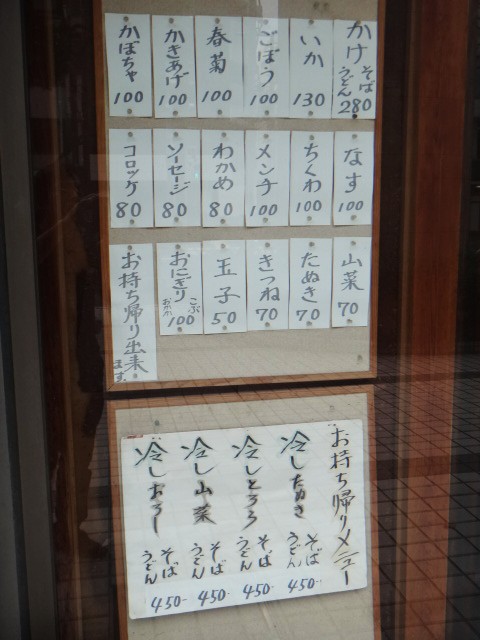 かけ そば うどん 280
いか 130
ごぼう 100
春菊 100
かきあげ 100
かぼちゃ 100
なす 100
ちくわ 100
メンチ 100
わかめ 80
ソーセージ 80
コロッケ 80
山菜 70
たぬき 70
きつね 70
玉子 50
おにぎり こぶ おかか 100
お持ち帰り出来ます
お持ち帰りメニュー
冷したぬき そば うどん 450-
冷しとろろ そば うどん 450-
冷し山菜 そば うどん 450-
冷しおろし そば うどん 450-